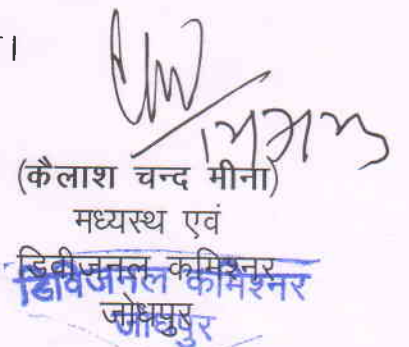 ।
(कैलाश चन्द मीना)
मध्यस्थ एवं
डिवीजनल कमिश्नर
डिविजनल कमिश्नर
जोधपुर
जोधपुर